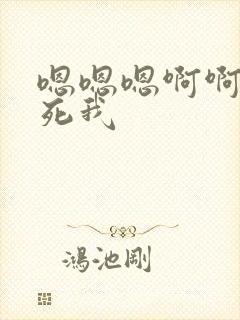 嗯嗯嗯啊啊
死我
鸿池刚